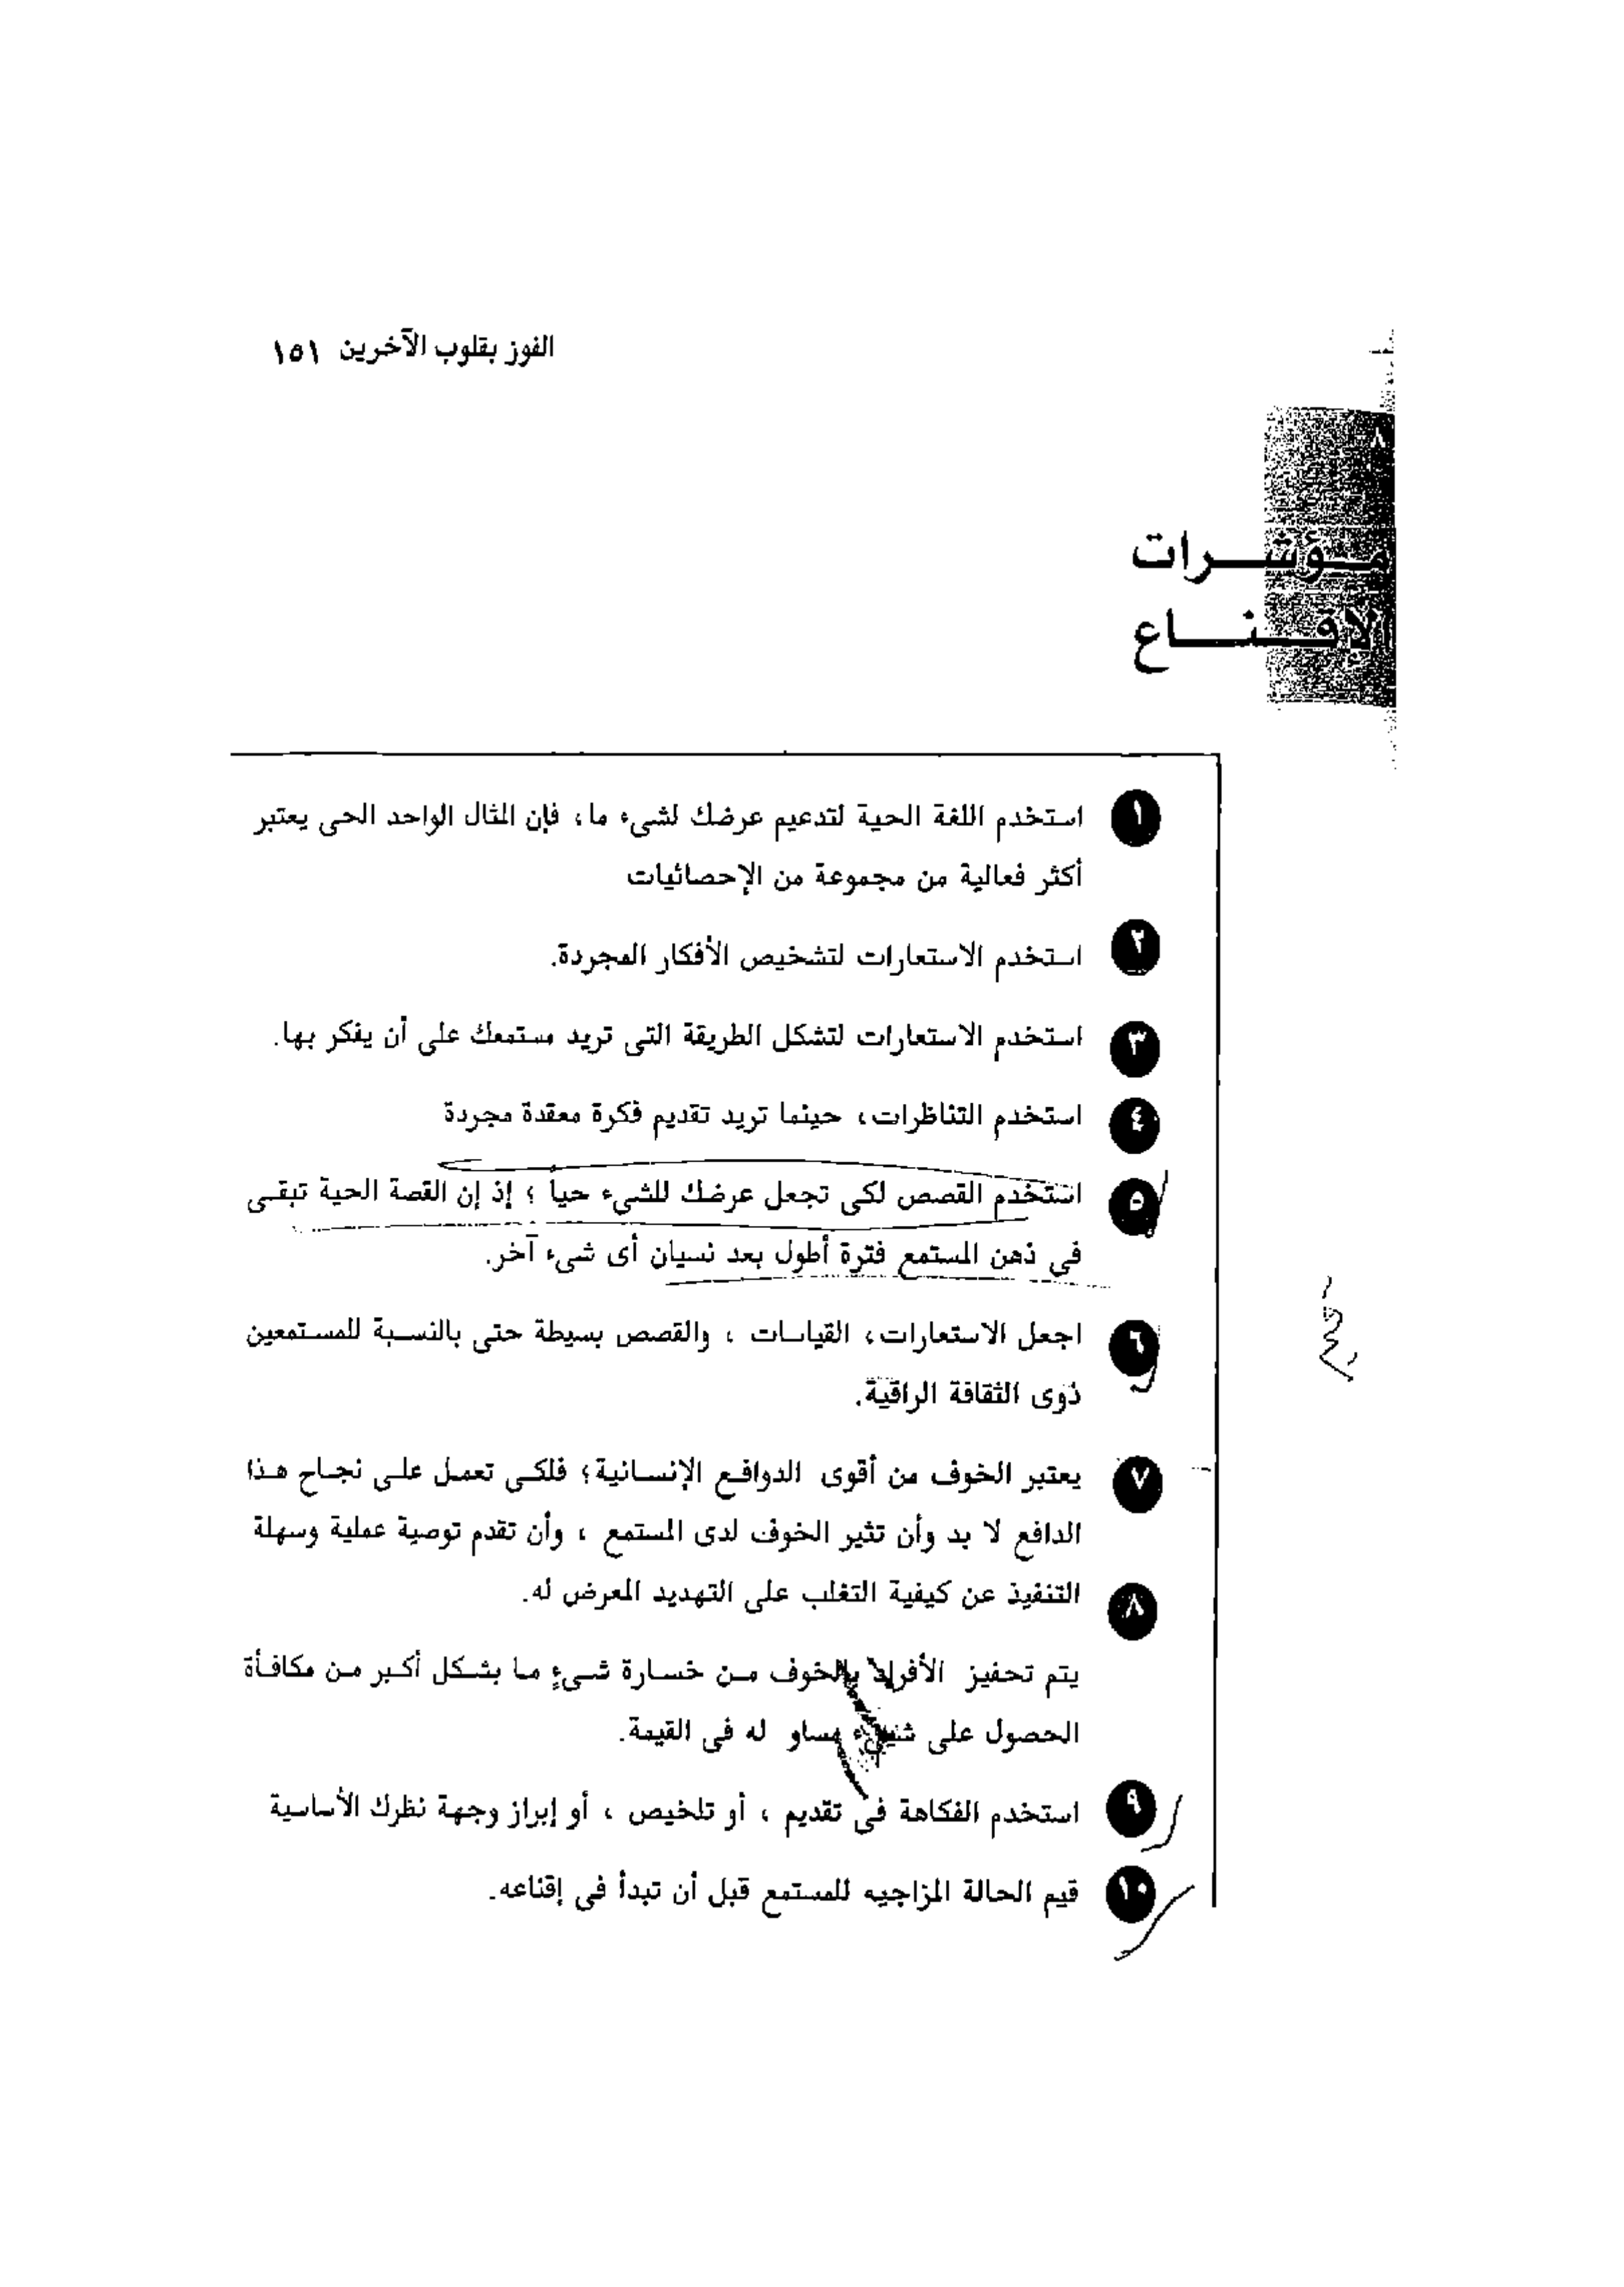 الفوز بقلوب الآخرين ١٥١
٨
مؤشرات
الإقناع
١ استخدم اللغة الحية لتدعيم عرضك لشىء ما، فإن المثال الواحد الحى يعتبر
أكثر فعالية من مجموعة من الإحصائيات
٢ استخدم الاستعارات لتشخيص الأفكار المجردة.
٣ استخدم الاستعارات لتشكل الطريقة التى تريد مستمعك على أن يفكر بها.
٤ استخدم التناظرات، حينما تريد تقديم فكرة معقدة مجردة
٥ استخدم القصص لكى تجعل عرضك للشىء حياً ؛ إذ إن القصة الحية تبقى
فى ذهن المستمع فترة أطول بعد نسيان أى شىء آخر.
٦ اجعل الاستعارات، القياسات ، والقصص بسيطة حتى بالنسبة للمستمعين
ذوى الثقافة الراقية.
٧ يعتبر الخوف من أقوى الدوافع الإنسانية؛ فلكى تعمل على نجاح هذا
الدافع لا بد وأن تثير الخوف لدى المستمع ، وأن تقدم توصية عملية وسهلة
٨ التنفيذ عن كيفية التغلب على التهديد المعرض له.
يتم تحفيز الأفراد بالخوف من خسارة شىءٍ ما بشكل أكبر من مكافأة
الحصول على شىء مساو له فى القيمة.
٩ استخدم الفكاهة فى تقديم ، أو تلخيص ، أو إبراز وجهة نظرك الأساسية
١٠ قيم الحالة المزاجيه للمستمع قبل أن تبدأ فى إقناعه.